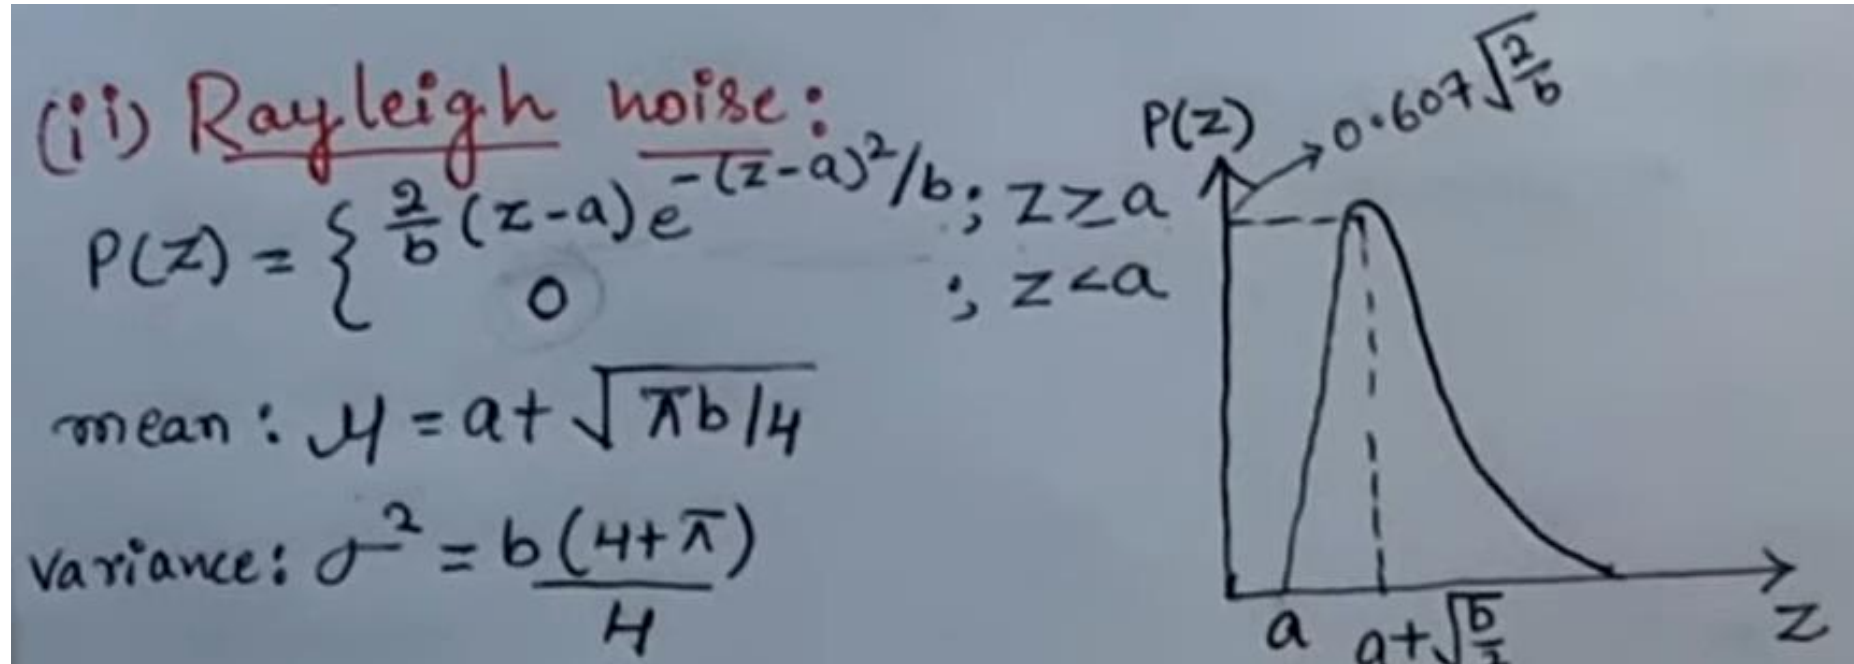 (ii) Rayleigh noise:
P(z) = { 2/b (z-a) e^-(z-a)²/b ; z≥a
0 ; z<a
mean : μ = a+ √πb/4
variance: σ² = b(4+π)/4
P(z)
0.607√2/b
a
a+√b/2
z